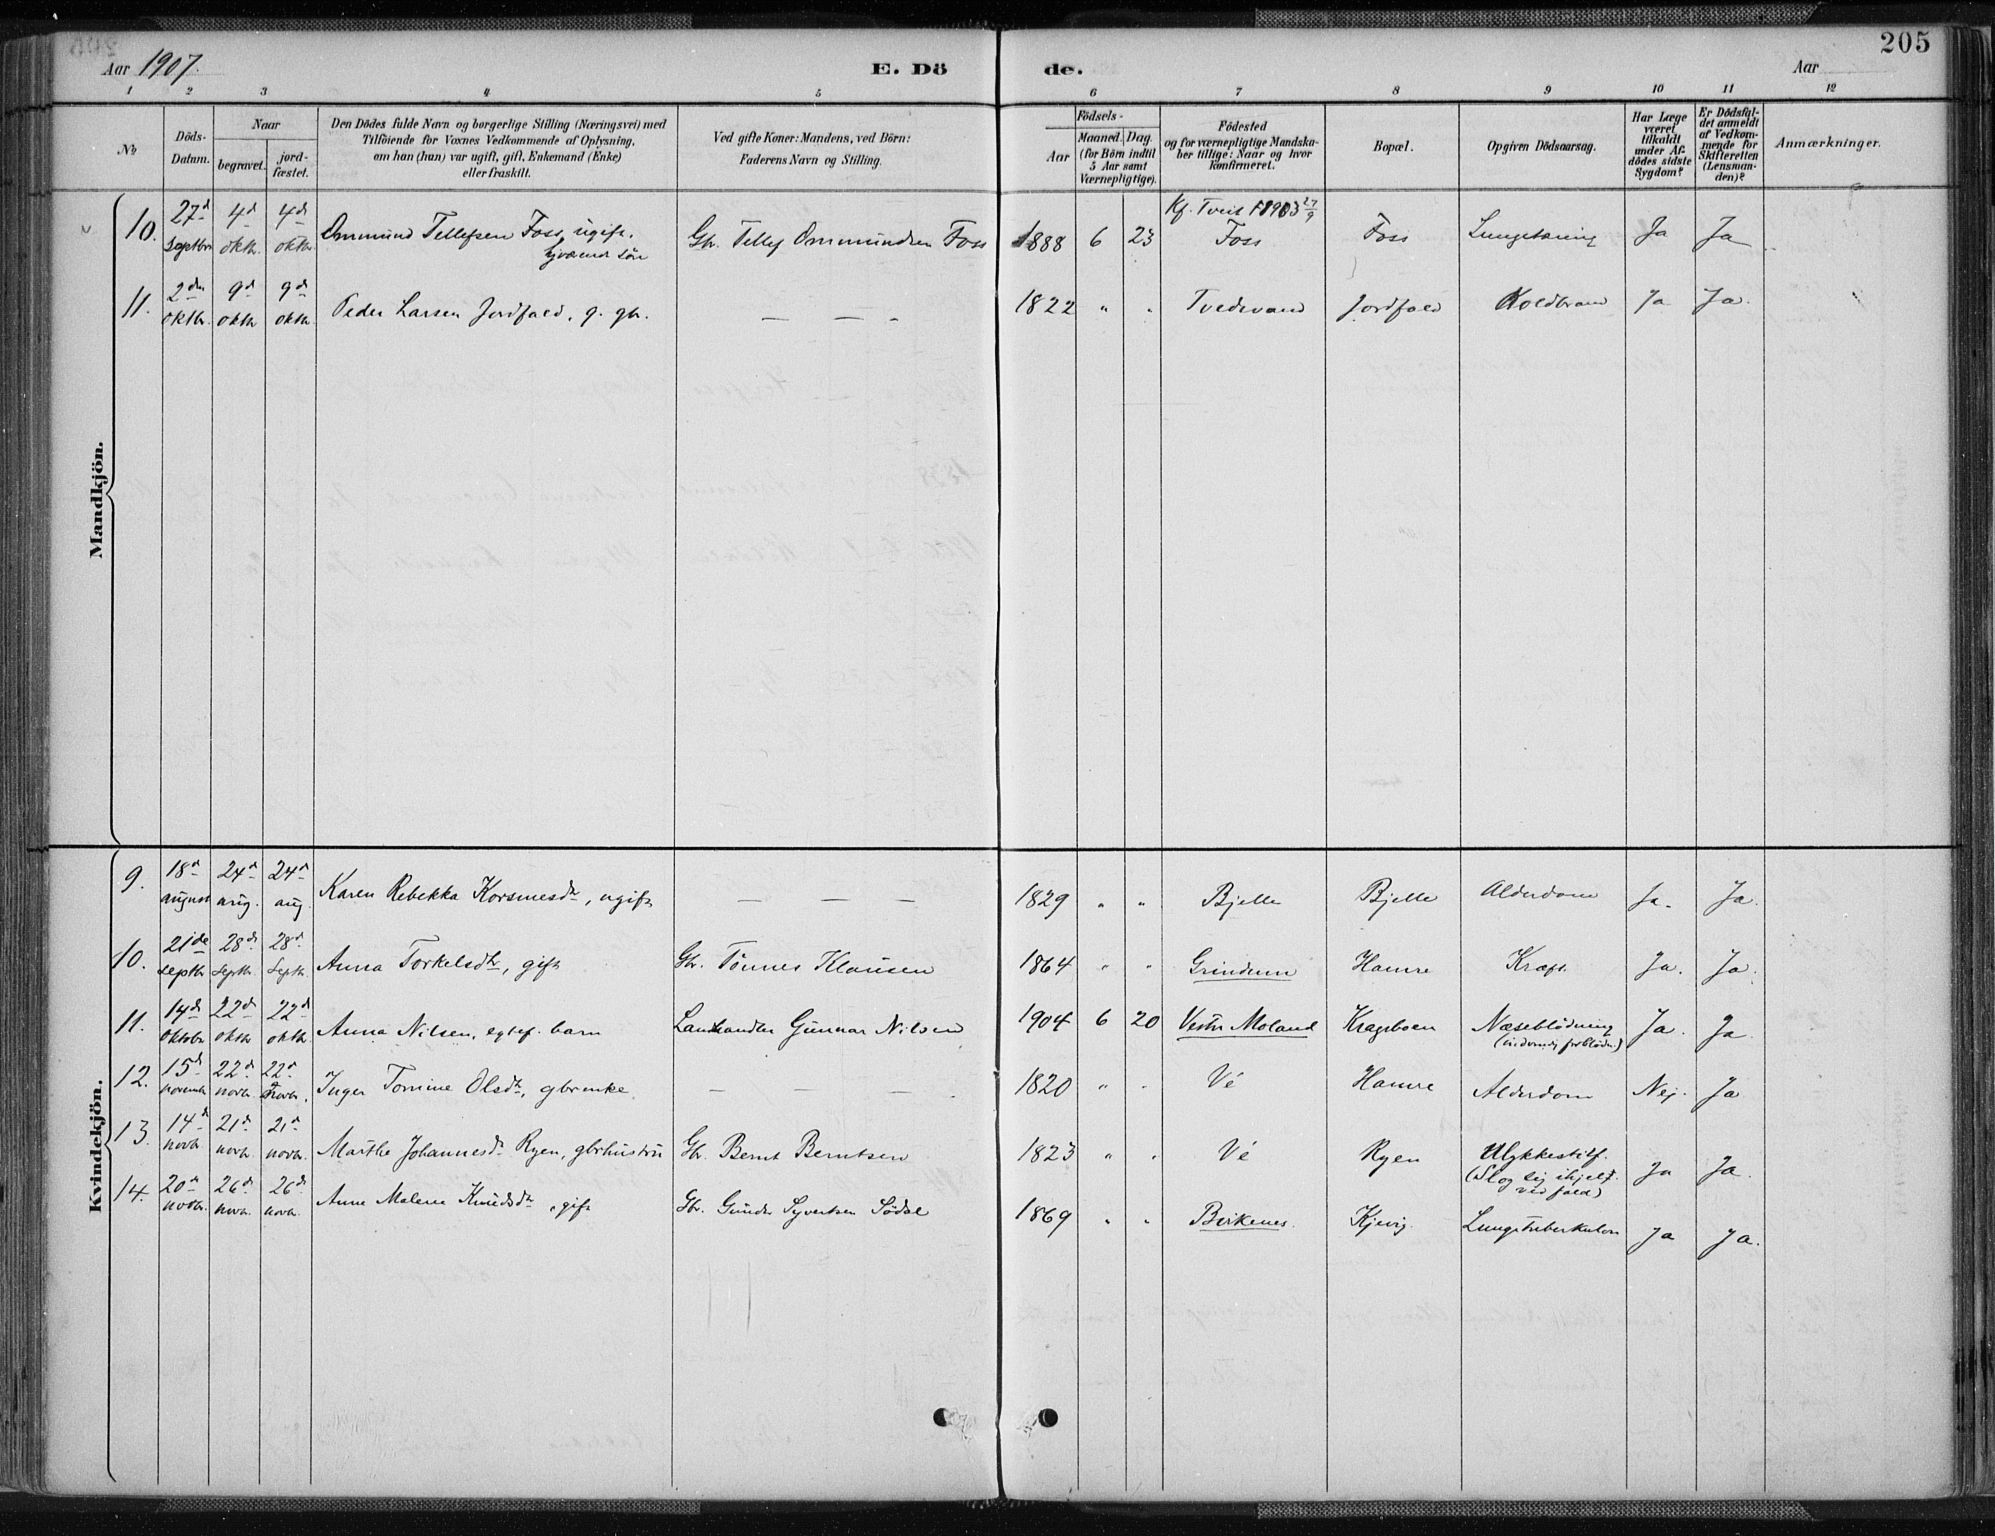 205
Aar 1907. E. Dö de. Aar
1 2 3 4 5 6 7 8 9 10 11 12
No. Döds-Datum. Naar begravet. jordfæstet. Den Dödes fulde Navn og borgerlige Stilling (Næringsvei) med Tilföiende for Voxnes Vedkommende af Oplysning, om han (hun) var ugift, gift, Enkemand (Enke) eller fraskilt. Ved gifte Koner: Mandens, ved Börn: Faderens Navn og Stilling. Födsels- Aar Maaned. Dag. (for Börn indtil 5 Aar samt Værnepligtige). Födested og for værnepligtige Mandskaber tillige: Naar og hvor konfirmeret. Bopæl. Opgiven Dödsaarsag. Har Læge været tilkaldt under Afdödes sidste Sygdom? Er Dödsfaldet anmeldt af Vedkommende for Skifteretten (Lensmanden)? Anmærkninger.
Mandkjön.
10. 27d septbr 4d oktbr. 4d oktbr Ommund Tellefsen Foss, ugift, søn Gbr. Tellef Ommundsen Foss 1888 6 23 Kf. Tveit 1903 27/9 Foss Foss Lungetæring Ja Ja
11. 2den oktbr. 9d oktbr 9d oktbr. Peder Larsen Jordfald, g. gbr. — — - 1822 " " Tvedevand Jordfald Koldbrand Ja Ja.
Kvindekjön.
9. 18d august 24d aug. 24d aug. Karen Rebekka Korsmesdtr, ugift — — — 1829 " " Bjelle Bjelle Alderdom Ja. Ja.
10. 21de septbr 28d septbr. 28d septbr. Anna Torkelsdtr, gift Gbr. Tönnes Klausen 1864 " " Grindum Hamre Kræft Ja. Ja.
11. 14d oktobr 22d oktbr 22d oktbr. Anna Nilsen, egtef. barn Landhandler Gunnar Nilsen 1904 6 20 Vestre Moland Krageboen Næseblödning Ja. Ja.
12. 15d novembr 22d novbr. 22d novbr. Inger Tomine Olsdtr, gbrenke. — — — 1820 " " Vé Hamre Alderdom Nej. Ja
13. 14d novbr. 21d novbr. 21d novbr. Marthe Johannesdtr Ryen, gbrhustru Gbr. Bernt Berntsen 1823 " " Vé Ryen Ulykkestilf. (Slog sig ihjel ved fald) Ja Ja.
14. 20d novbr. 26d novbr. 26d novbr. Anne Malene Knudsdtr, gift Gbr. Gunder Syvertsen Södal 1869 " " Birkenes. Kjevig. Lungetuberkulose Ja Ja.